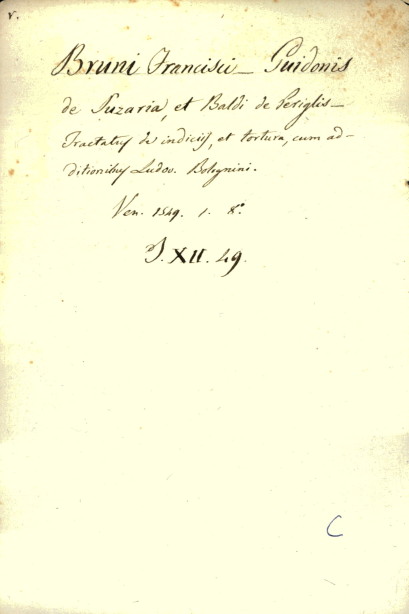 v.
Bruni Francisci _ Guidonis
de Suzaria, et Baldi de Periglis _
Tractatus de indiciis, et tortura, cum ad-
ditionibus Ludov. Bolognini.
Ven. 1549. 1. 8.º
J. XII. 49.
C